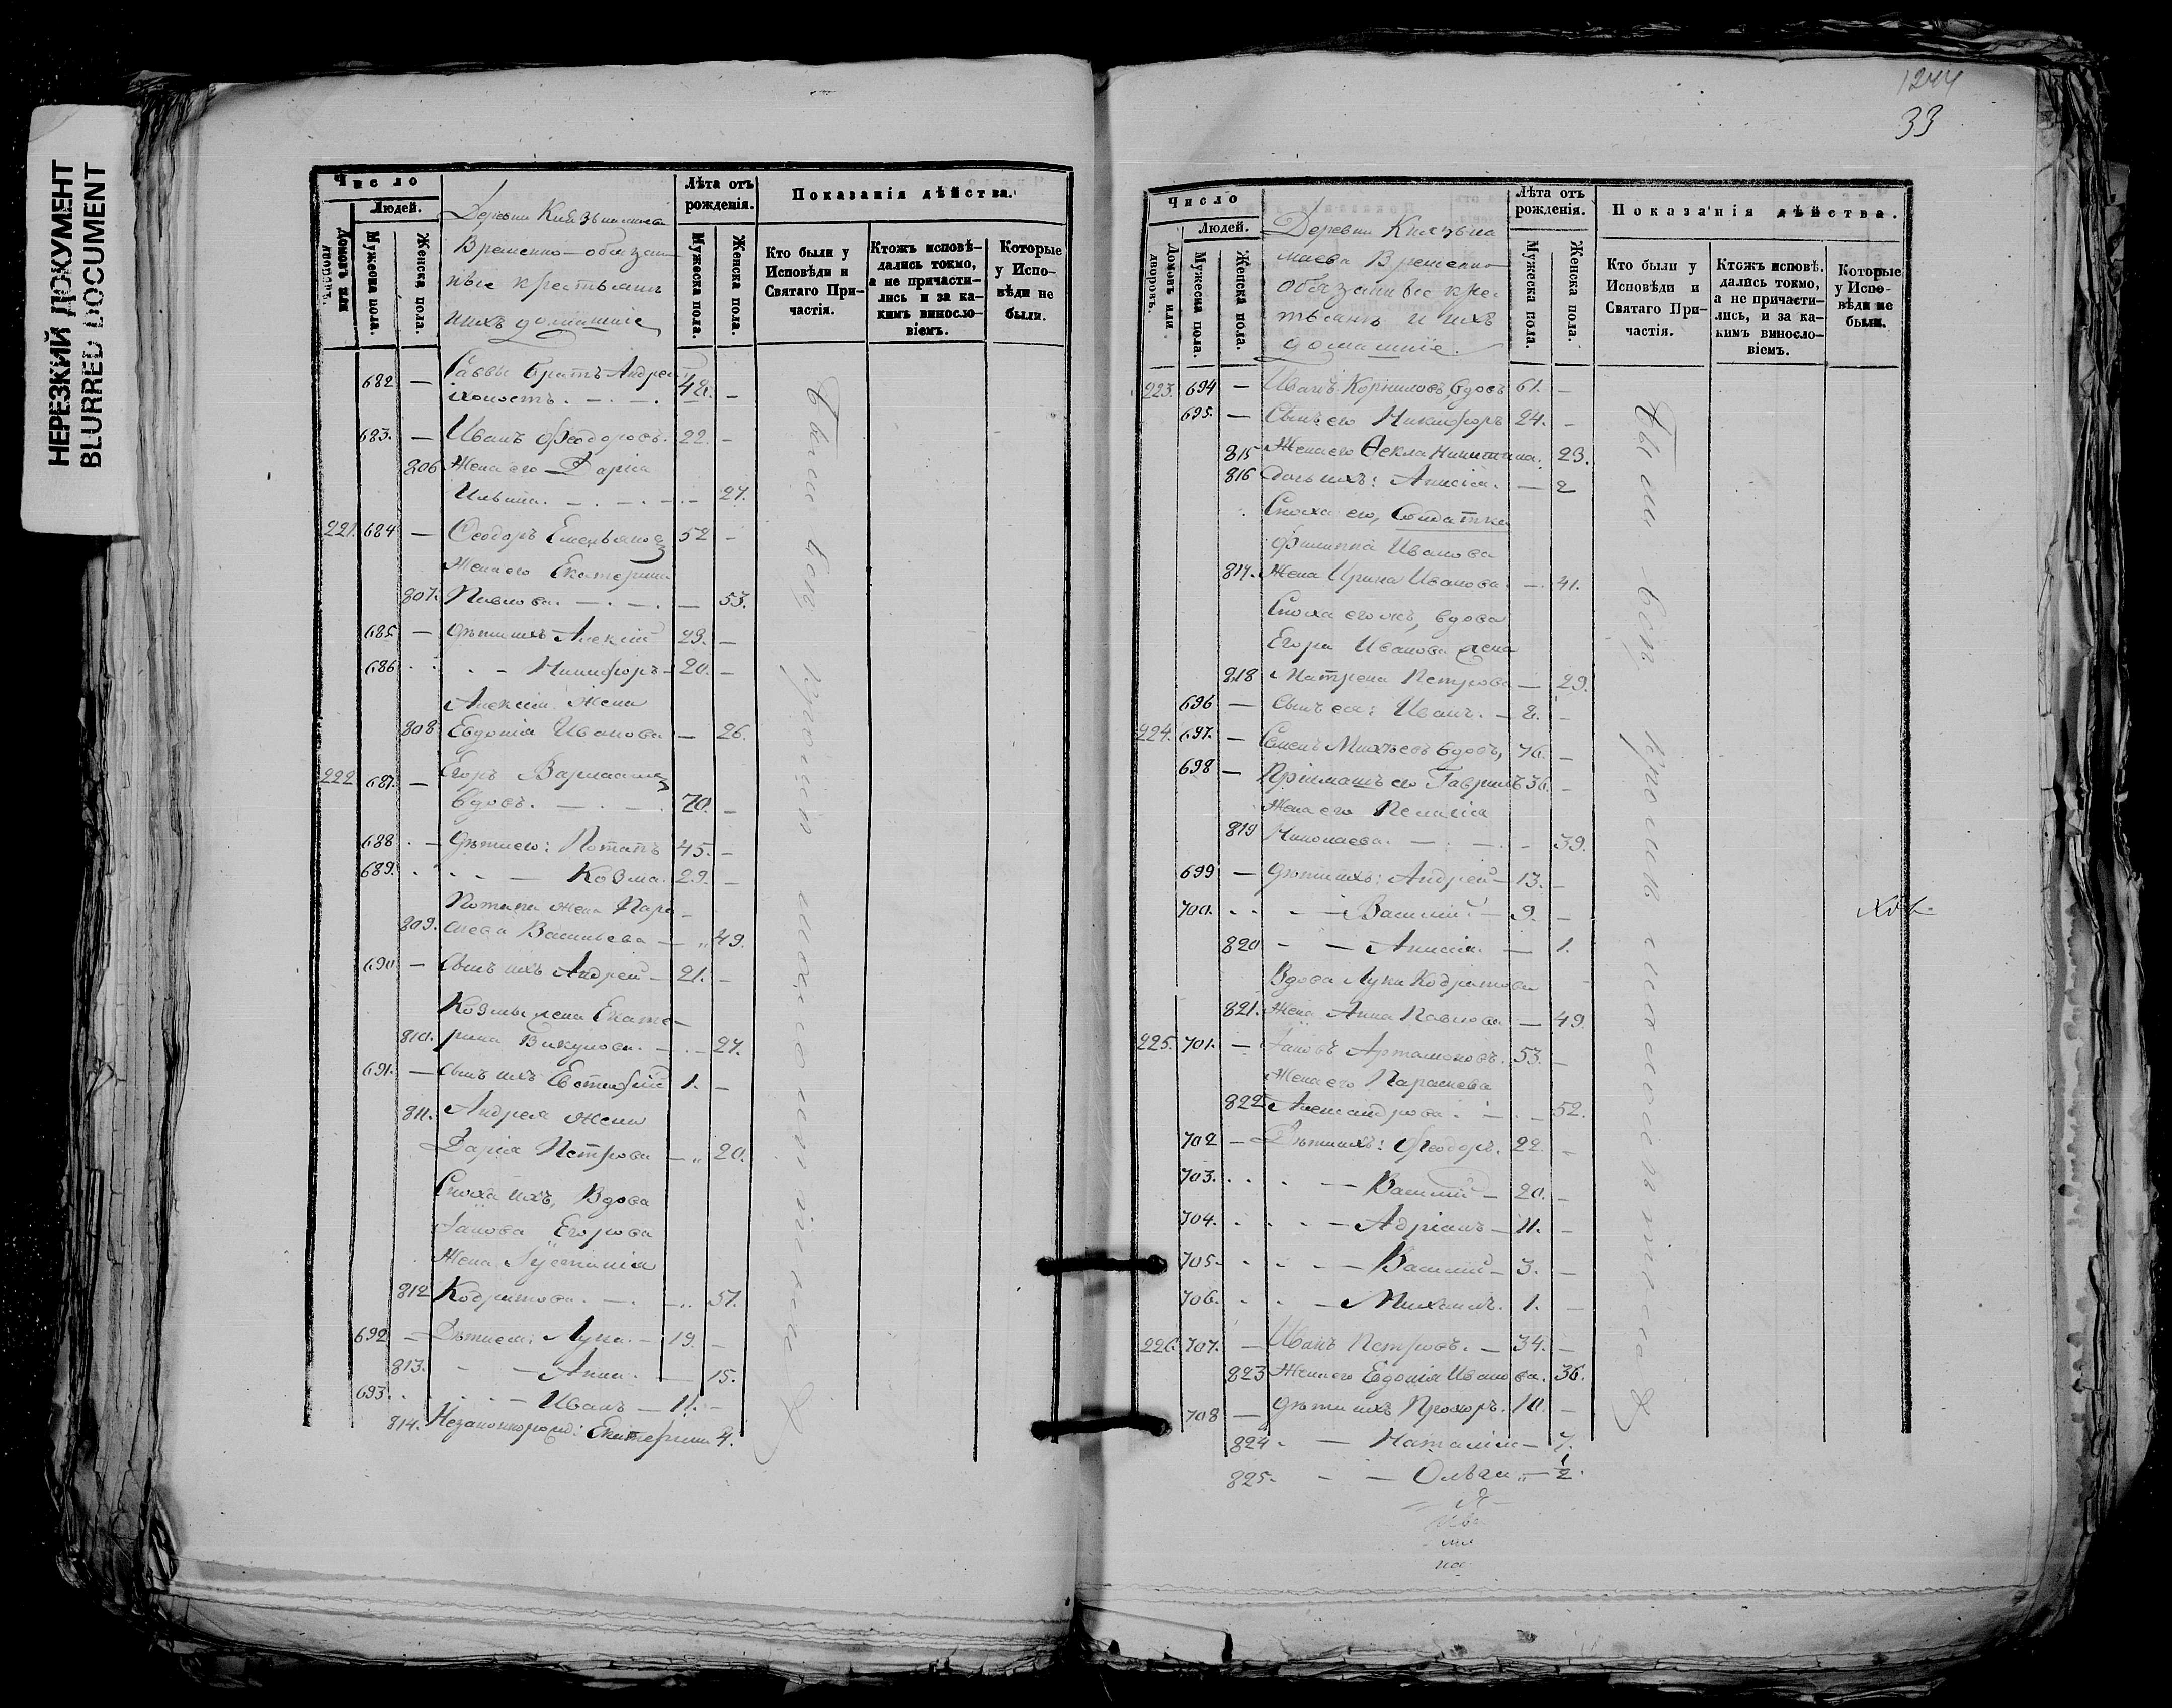 НЕРЕЗКИЙ ДОКУМЕНТ
BLURRED DOCUMENT
Число
Людей.
Домовъ или дворовъ.
Мужеска пола.
Женска пола.
Деревни
Временно-обязан
ные крестьяне
и ихъ домашніе
Лѣта отъ рожденія.
Мужеска пола.
Женска пола.
Показанія дѣйства.
Кто были у Исповѣди и Святаго Причастія.
Ктожъ исповѣдались токмо, а не причастились и за какимъ винословіемъ.
Которые у Исповѣди не были.
682 — Саввы братъ Андрей
холостъ. — . — . 48. —
683. — Иванъ Ѳеодоровъ. 22. —
806 Жена его Дарія
Ильина. — . — . — 27.
221. 684 — Ѳеодоръ Емельяновъ 52 —
Жена его Екатерина
807. Павлова. — . — . — 53.
685. — Дѣти ихъ Алексій 23. —
686 Никифоръ — 20. —
Алексія Жена
808 Евдокія Иванова — 26.
222 687. — Егоръ
Вдовъ. — . — . 70. —
688 . — Дѣти его: Потапъ 45. —
689. — Козма. 29. —
Потапа жена Пара —
809. скева Васильева — „ 49.
690 — Сынъ ихъ Андрей — 21. —
Козмы жена Екате —
810. рина Викулова. — . — 27.
691. — Сынъ ихъ Евтифій 1. —
811. Андрея жена
Дарія Петрова — „ 20.
Сноха ихъ, Вдова
Іакова Егорова
Жена Іустинія
812 Кодратова. — . — „ 57.
692 — Дѣти ея: Лука. — 19. —
813. — — Анна. — 15.
693. — Иванъ — 11. —
814. Незаконнорожд: Екатерина 4.
Были всѣ
1244
33
Число
Людей.
Домовъ или дворовъ.
Мужеска пола.
Женска пола.
Деревни
Временно
обязанные кре
тьяне и ихъ
домашніе.
Лѣта отъ рожденія.
Мужеска пола.
Женска пола.
Показанія дѣйства.
Кто были у Исповѣди и Святаго Причастія.
Ктожъ исповѣдались токмо, а не причастились, и за какимъ винословіемъ.
Которые у Исповѣди не были.
223. 694 — Иванъ Корниловъ, вдовъ 61. —
695. — Сынъ его Никифоръ 24. —
815 Жена его Ѳекла Никитина. 23.
816 Дочь ихъ: Анисія. — 2
Сноха его, Солдатка
Филиппа Иванова
817. Жена Ирина Иванова. — 41.
Сноха его жъ, вдова
Егора Иванова жена
818 Матрена Петрова — 29.
696 — Сынъ ея: Иванъ. — 8. —
224. 697. — Семенъ Михѣевъ вдовъ, 76. —
698 — Пріимышъ его Гаврилъ 36. —
Жена его Пелагія
819 Николаева. — . — . — 39.
699 — Дѣти ихъ: Андрей — 13. —
700. — Василій — 9. —
820 — — Анисія. — 1.
Вдова Луки Кодратова
821. Жена Анна Павлова — 49.
225. 701. — Іаковъ Артамоновъ. 53. —
Жена его Параскева
822 Александрова. — . — 52.
702 — Дѣти ихъ: Ѳеодоръ. 22. —
703. — Василій — 20. —
704. — Адріанъ — 11. —
705. — Василій — 3. —
706. — Михаилъ. 1. —
226. 707. — Иванъ Петровъ. — 34. —
823 Жена его Евдокія Иванова. 36.
708 — Дѣти ихъ Прохоръ. 10. —
824 — Наталія — 7.
825. — — Ольга „ — 1/2.
Были всѣ